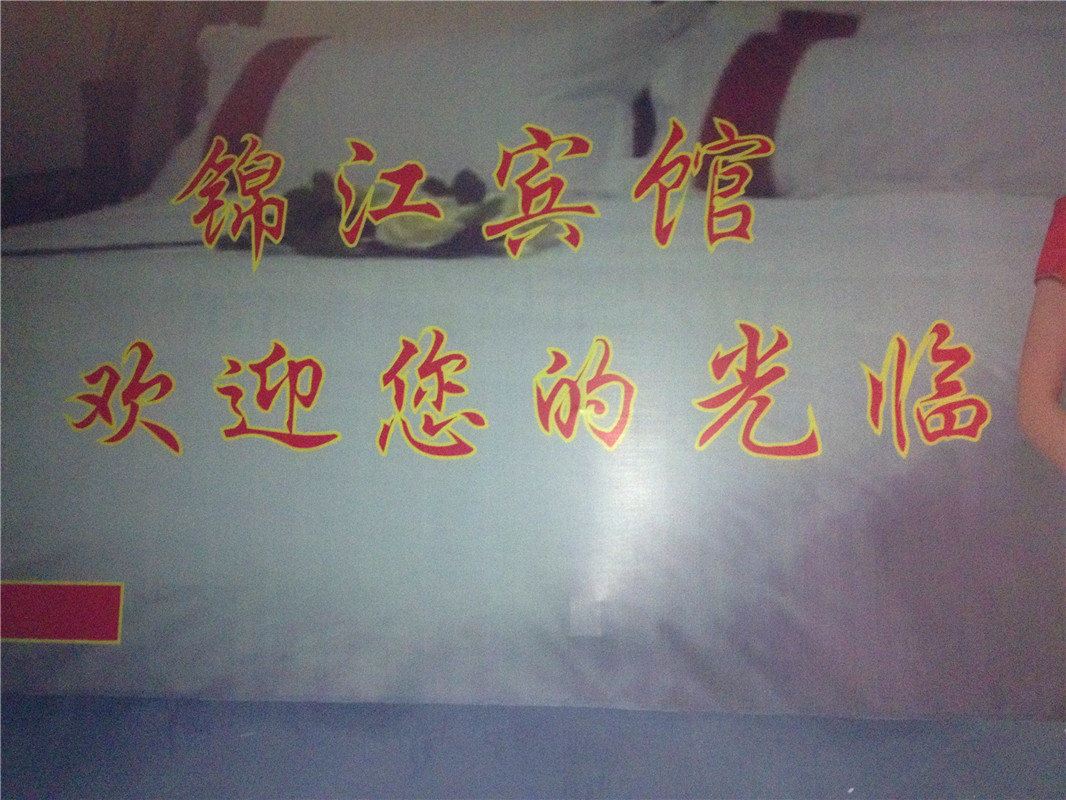 锦江宾馆
欢迎您的光临